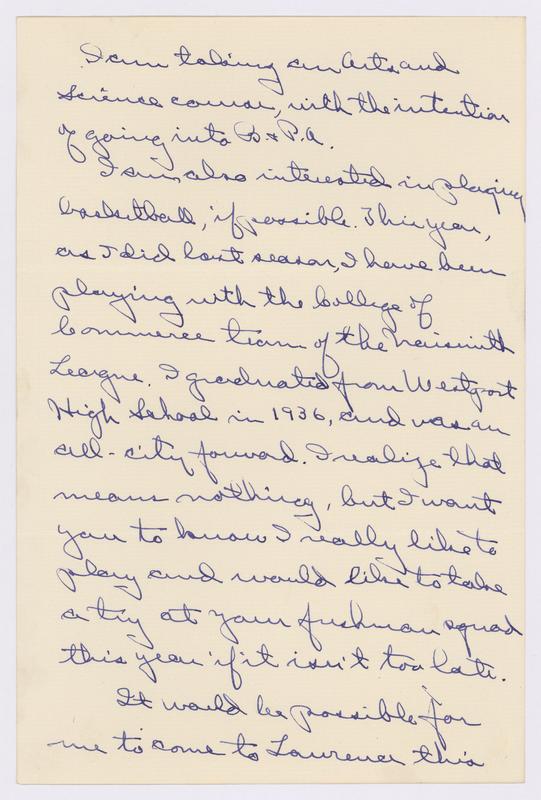 I am taking an Arts and
Science course, with the intention
of going into B & P.A.
I am also interested in playing
basketball, if possible. This year,
as I did last season, I have been
playing with the College of
Commerce team of the Naismith
League. I graduated from Westport
High School in 1936, and was an
all-city forward. I realize that
means nothing, but I want
you to know I really like to
play and would like to take
a try at your freshman squad
this year if it isn't too late.
It would be possible for
me to come to Lawrence this